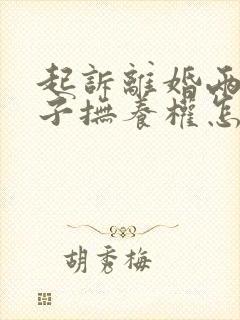 起訴離婚兩
子撫養權怎
胡秀梅